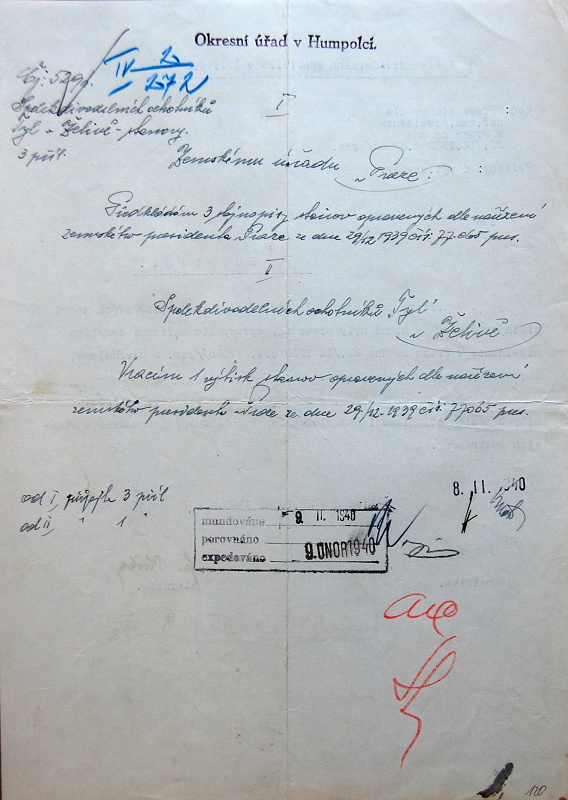 Okresní úřad v Humpolci.
IV 2
2572
Čj. 529
Spolek divadelních ochotníků
Tyl v Želivě - stanovy.
3 příl.
I
Zemskému úřadu
v Praze.
Předkládám 3 stejnopisy stanov opravených dle nařízení
zemského presidenta Praze ze dne 29/12 1939 čís. 77.065 pres.
II
Spolek divadelních ochotníků "Tyl"
v Želivě
Vracím 1 výtisk stanov opravených dle nařízení
zemského presidenta ze dne 29.-12.-1939 čís. 77065 pres.
8. II. 1940
od I, připojte 3 příl
od II, " 1 "
mundováno 9 II. 1940
porovnáno
expedováno 9. ÚNOR 1940
120